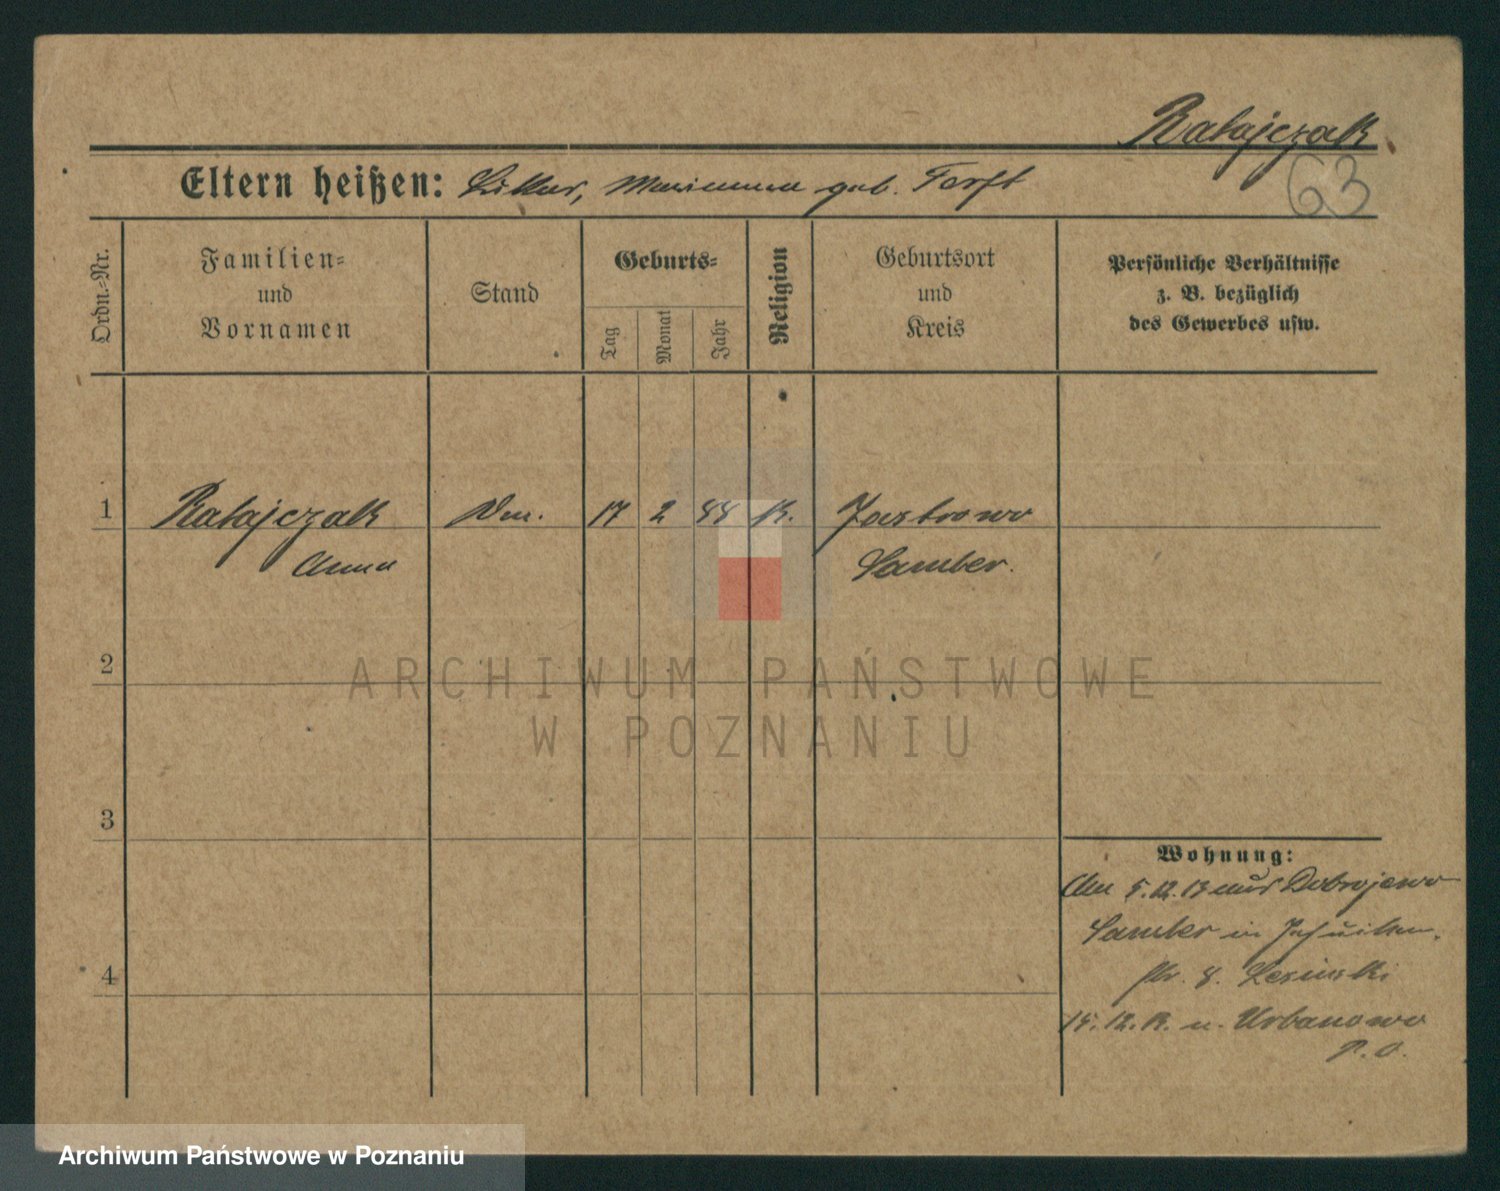 Ratajczak
63
Eltern heißen: Marianna geb.
Ordn.-Nr.
Familien-
und
Vornamen
Stand
Geburts-
Tag
Monat
Jahr
Religion
Geburtsort
und
Kreis
Persönliche Verhältnisse
z. B. bezüglich
des Gewerbes usw.
1 Ratajczak 17 2 88 K. Jastrowo
Anna Samter.
2
ARCHIWUM PAŃSTWOWE
W POZNANIU
3
Wohnung:
5.12.13 aus Dobrojewo
Samter in
8.
15.12.13. n. Urbanowo
4
Archiwum Państwowe w Poznaniu